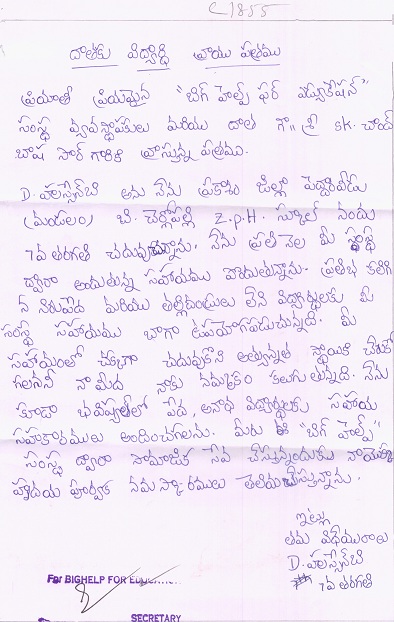 C1855
దాతకు విద్యార్ధి వ్రాయు పత్రము
ప్రియాతి ప్రియమైన "బిగ్ హెల్ప్ ఫర్ ఎడ్యుకేషన్"
సంస్థ వ్యవస్థాపకులు మరియు దాత గౌ|| శ్రీ SK. చాంద్
బాష సార్ గారికి వ్రాస్తున్న పత్రము.
D. హుస్సేన్‌బి అను నేను ప్రకాశం జిల్లా పెద్దారవీడు
(మండలం) బి. చెర్లోపల్లి Z.P.H. స్కూల్ నందు
7వ తరగతి చదువుచున్నాను. నేను ప్రతి నెల మీ సంస్థ
ద్వారా అందుతున్న సహాయము పొందుతున్నాను. ప్రతిభ కలిగి
నిరుపేద మరియు తల్లిదండ్రులు లేని విద్యార్ధులకు మీ
సంస్థ సహాయము బాగా ఉపయోగపడుచున్నది. మీ
సహాయంతో చక్కగా చదువుకొని అత్యున్నత స్థాయికి చేరుకో
గలనని నామీద నాకు నమ్మకం కలుగుతున్నది. నేను
కూడా భవిష్యత్‌లో పేద, అనాధ విద్యార్ధులకు సహాయ
సహకారములు అందించగలను. మీరు ఈ "బిగ్ హెల్ప్"
సంస్థ ద్వారా సామాజిక సేవ చేస్తున్నందుకు నాయొక్క
హృదయ పూర్వక నమస్కారములు తెలియచేస్తున్నాను.
ఇట్లు
తమ విధేయురాలు
D. హుస్సేన్‌బి
7వ తరగతి
For BIGHELP FOR EDUCATION
SECRETARY